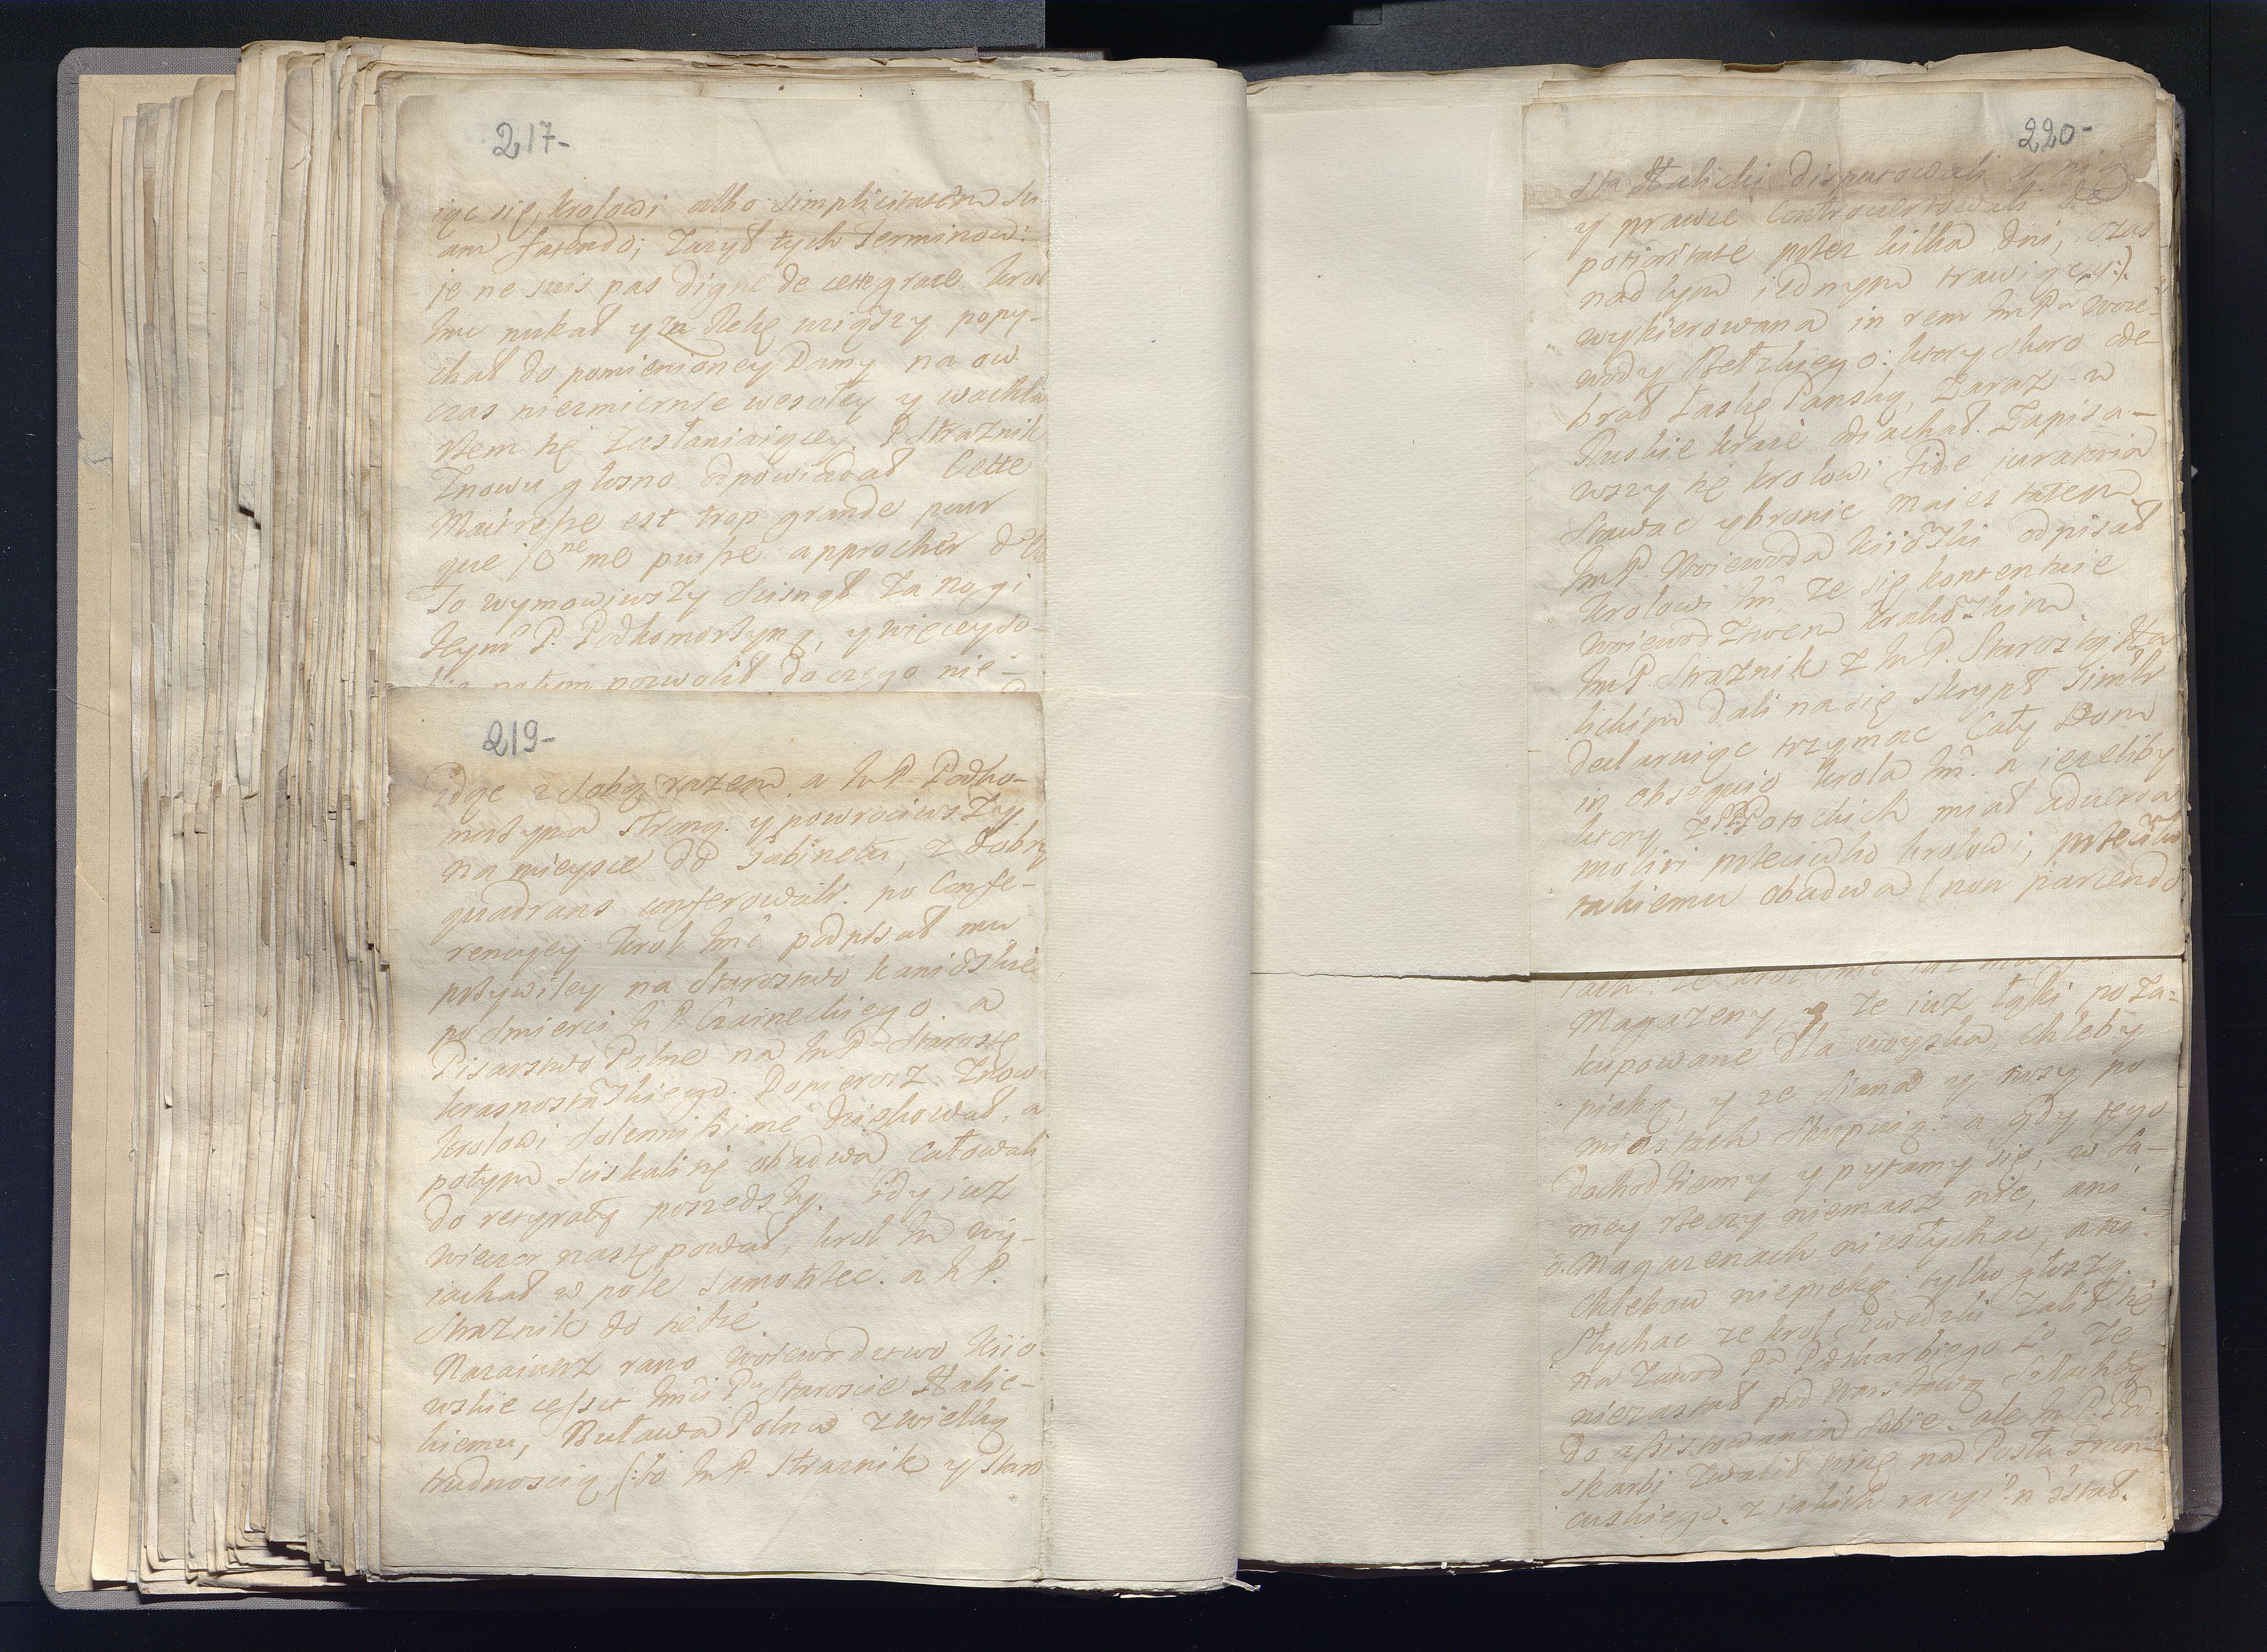 217-
iąc się krolowi albo simplicitatem su
am fatendo; Zazył tych Terminow:
je ne suis pas digne de cette grace. Krol
Imc nukał y za Rękę wziąwszy popy-
chał do pomienioney Damy na ow
czas niezmiernie wesołey y wachla
rzem się zasłaniaiącey. P. Strażnik
Znowu głosno odpowiadał Cette
Maitresse est trop grande pour
que je ne me puisse approcher
To wymowiwszy scisnął za nogi
Jeym P. Podkomorzyną, y więcey so-
bie potym pozwolił do czego nie-
219-
idąc z sobą razem, a ImP. Podko-
morzyna stroną. y powrociwszy
na mieysce do Gabinetu, z dobry
quadrans conferowali. po Confe-
rencyey Krol Imc podpisał mu
przywiley na Starostwo kaniowskie
po smierci P. Czarneckiego a
Pisarstwo Polne na ImPa Starostę
krasnostawskiego. Dopierosz Znow
krolowi solennissime dziękował, a
potym sciskali się obadwa, całowali
do retyraty poszedszy. Gdy iuz
wieczor następował, krol Im wy-
iachał w pole samotrzec. a P.
Straznik do siebie
Nazaiutrz rano woiewodztwo kiio-
wskie cessit Imci Pu Staroscie Halic-
kiemu, Buława Polna z wielką
trudnoscią (:bo ImP. Straznik y Staro
220-
sta Halicki disputowali
y prawie Controvertowali de
potioritate przez kilka dni, czas
nad tym iednym trawiąc:).
wykierowana in rem ImPa Woie-
wody Bełzkiego: ktory skoro ode-
brał Łaskę Panską, Zaraz w
Ruskie kraie odiachał. Zapisa-
wszy się krolowi fide juratoria
stawac y bronic Maiestatem
ImP. Woiewoda kiiowski odpisał
krolowi Im. Ze się kontentuie
woiewodztwem krakowskim
ImP. Straznik z ImP. Starostą Ha
lickim dali na się skrypt simul
declaruiąc trzymac Cały Dom
in obsequio krola Im. a iezeliby
ktory z PPP Potockich miał adversa
moliri przeciwko krolowi, przeciwko
takiemu obadwa (non parcendo
Magazeny, y ze iuz łąki poza-
kupowane dla woyska, Chleby
pieką, y ze siana y owsy po
miastach skupuią: a gdy tego
dochodziemy y pytamy się, w sa-
mey rzeczy niemasz nic, ani
o Magazenach niesłychac, ani
Chlebow niepieką: tylko głoszą.
Słychac ze krol Szwedzki zalił się
na zawod Pa Podskarbiego Lo, Ze
niezastał pod Warszawą Szlachty
do assistowania sobie. ale ImP. Pod
skarbi zwalił winę na Posła Fran
cuskiego. z iakich racyi?